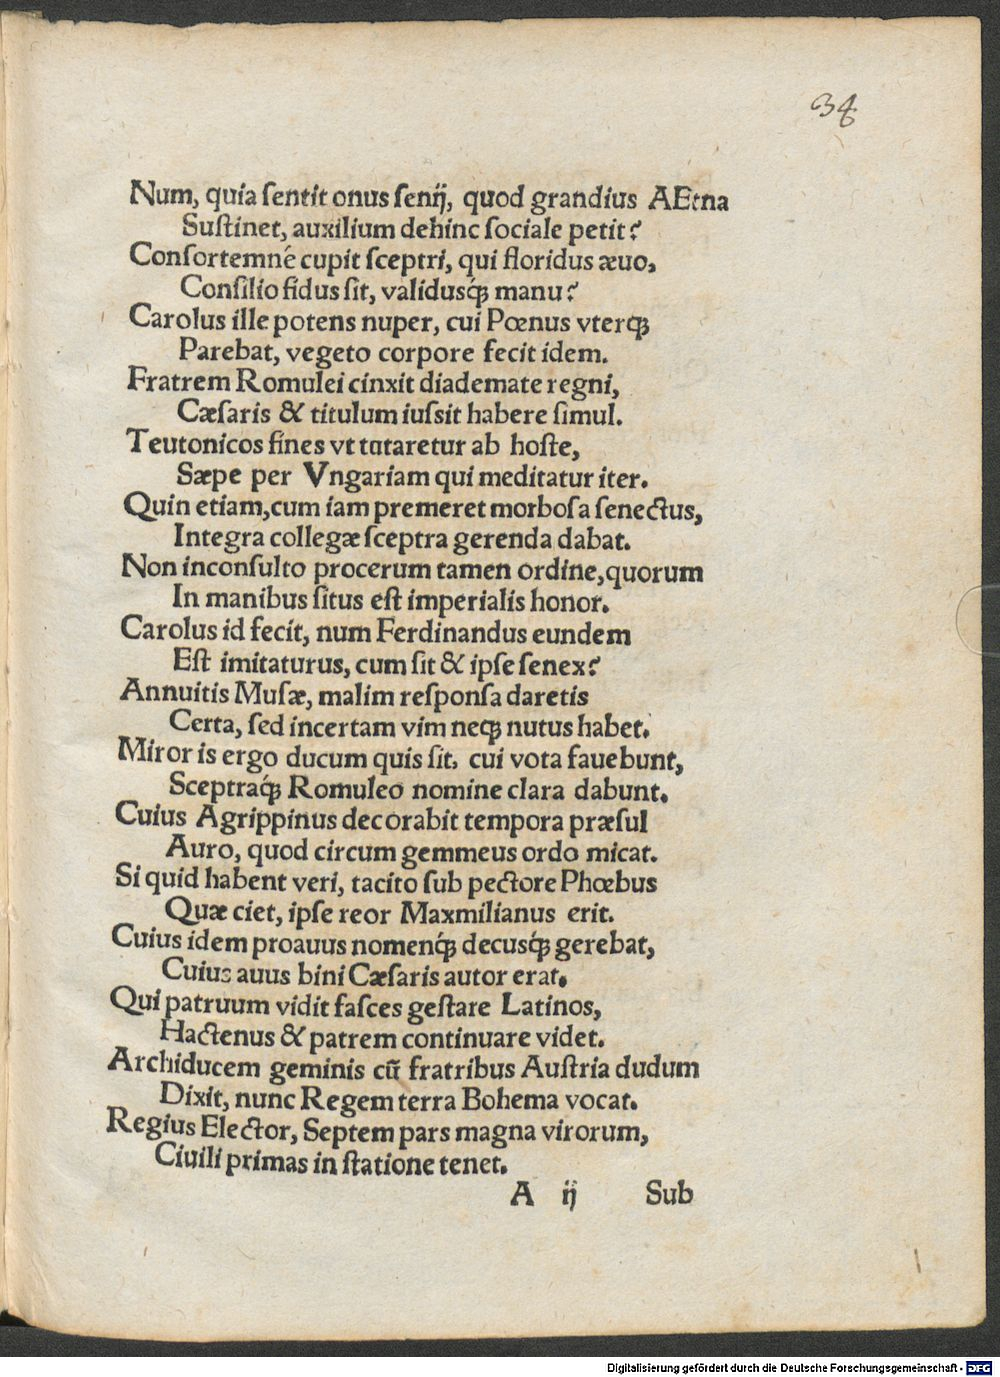 34
Num, quia ſentit onus ſenĳ, quod grandius AEtna
Suſtinet, auxilium dehinc ſociale petit?
Conſortemné cupit ſceptri, qui floridus æuo,
Conſilio fidus ſit, validusq́ꝫ manu?
Carolus ille potens nuper, cui Pœnus vterqꝫ
Parebat, vegeto corpore fecit idem.
Fratrem Romulei cinxit diademate regni,
Cæſaris & titulum iuſsit habere ſimul.
Teutonicos fines vt tutaretur ab hoſte,
Sæpe per Vngariam qui meditatur iter.
Quin etiam, cum iam premeret morboſa ſenectus,
Integra collegæ ſceptra gerenda dabat.
Non inconſulto procerum tamen ordine, quorum
In manibus ſitus eſt imperialis honor.
Carolus id fecit, num Ferdinandus eundem
Eſt imitaturus, cum ſit & ipſe ſenex?
Annuitis Muſæ, malim reſponſa daretis
Certa, ſed incertam vim neqꝫ nutus habet.
Miror is ergo ducum quis ſit, cui vota fauebunt,
Sceptraq́ꝫ Romuleo nomine clara dabunt.
Cuius Agrippinus decorabit tempora præſul
Auro, quod circum gemmeus ordo micat.
Si quid habent veri, tacito ſub pectore Phœbus
Quæ ciet, ipſe reor Maxmilianus erit.
Cuius idem proauus nomenq́ꝫ decusq́ꝫ gerebat,
Cuius auus bini Cæſaris autor erat.
Qui patruum vidit faſces geſtare Latinos,
Hactenus & patrem continuare videt.
Archiducem geminis cũ fratribus Auſtria dudum
Dixit, nunc Regem terra Bohema vocat.
Regius Elector, Septem pars magna virorum,
Ciuili primas in ſtatione tenet.
A ĳ Sub
Digitalisierung gefördert durch die Deutsche Forschungsgemeinschaft - DFG